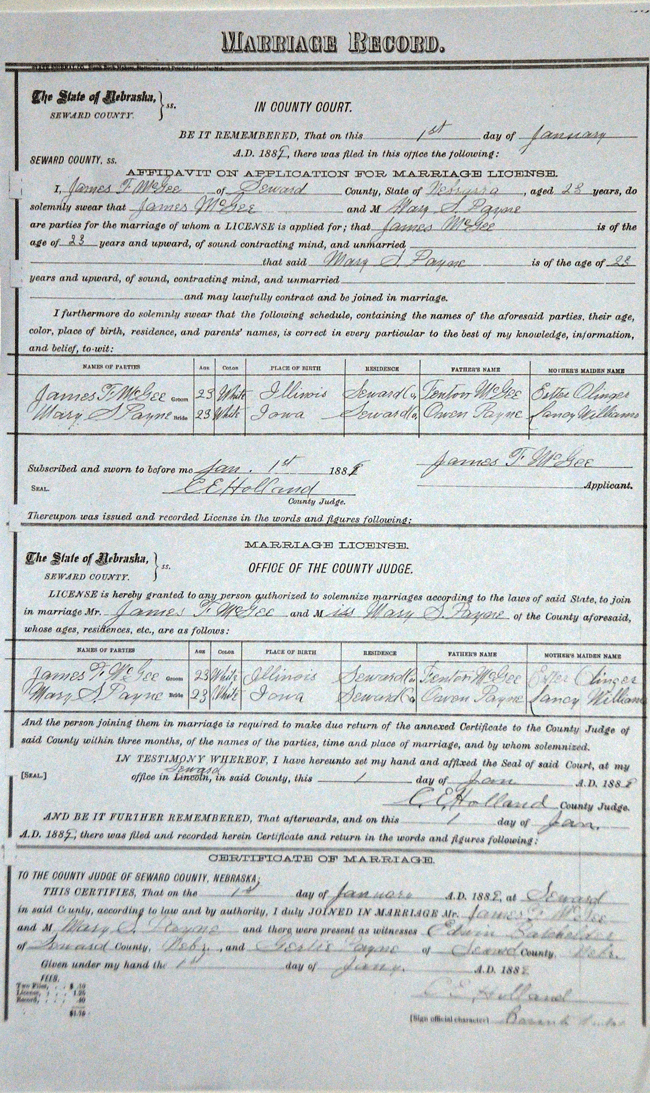 MARRIAGE RECORD.
The State of Nebraska, } ss.
SEWARD COUNTY.
IN COUNTY COURT.
BE IT REMEMBERED, That on this 1st day of January
A.D. 188, there was filed in this office the following:
SEWARD COUNTY, ss.
AFFIDAVIT ON APPLICATION FOR MARRIAGE LICENSE.
I, James F McGee of Seward County, State of Nebraska, aged 23 years, do
solemnly swear that James McGee and M Mary S. Payne
are parties for the marriage of whom a LICENSE is applied for; that James McGee is of the
age of 23 years and upward, of sound contracting mind, and unmarried
that said Mary S. Payne is of the age of 23
years and upward, of sound, contracting mind, and unmarried
and may lawfully contract and be joined in marriage.
I furthermore do solemnly swear that the following schedule, containing the names of the aforesaid parties, their age,
color, place of birth, residence, and parents' names, is correct in every particular to the best of my knowledge, information,
and belief, to-wit:
NAMES OF PARTIES AGE COLOR PLACE OF BIRTH RESIDENCE FATHER'S NAME MOTHER'S MAIDEN NAME
James F. McGee Groom 23 White Illinois Seward Co, Fenton McGee Ester Olinger
Mary S Payne Bride 23 White Iowa Seward Co, Owen Payne Nancy Williams
Subscribed and sworn to before me Jan. 1st 188
James F McGee
SEAL. C E Holland Applicant.
County Judge.
Thereupon was issued and recorded License in the words and figures following:
MARRIAGE LICENSE.
The State of Nebraska, } ss.
SEWARD COUNTY.
OFFICE OF THE COUNTY JUDGE.
LICENSE is hereby granted to any person authorized to solemnize marriages according to the laws of said State, to join
in marriage Mr. James F McGee and M iss Mary S. Payne of the County aforesaid,
whose ages, residences, etc., are as follows:
NAMES OF PARTIES AGE COLOR PLACE OF BIRTH RESIDENCE FATHER'S NAME MOTHER'S MAIDEN NAME
James F. McGee Groom 23 White Illinois Seward Co Fenton McGee Ester Olinger
Mary S. Payne Bride 23 White Iowa Seward Co, Owen Payne Nancy Williams
And the person joining them in marriage is required to make due return of the annexed Certificate to the County Judge of
said County within three months, of the names of the parties, time and place of marriage, and by whom solemnized.
IN TESTIMONY WHEREOF, I have hereunto set my hand and affixed the Seal of said Court, at my
Seward
[SEAL.] office in Lincoln, in said County, this 1 day of Jan A.D. 188
C. E. Holland County Judge.
AND BE IT FURTHER REMEMBERED, That afterwards, and on this 1 day of Jan.
A.D. 188, there was filed and recorded herein Certificate and return in the words and figures following:
CERTIFICATE OF MARRIAGE.
TO THE COUNTY JUDGE OF SEWARD COUNTY, NEBRASKA;
THIS CERTIFIES, That on the 1st day of January A.D. 188, at Seward
in said County, according to law and by authority, I duly JOINED IN MARRIAGE Mr. James F McGee
and M Mary S. Payne and there were present as witnesses Edwin Batchelder
of Seward County, Nebr., and Gertie Payne of Seward County, Nebr.
Given under my hand the 1st day of Jany. A.D. 188
FEES.
Two Files, $ .10
License, 1.25
Record, .40
$1.75
C E Holland
[Sign official character]